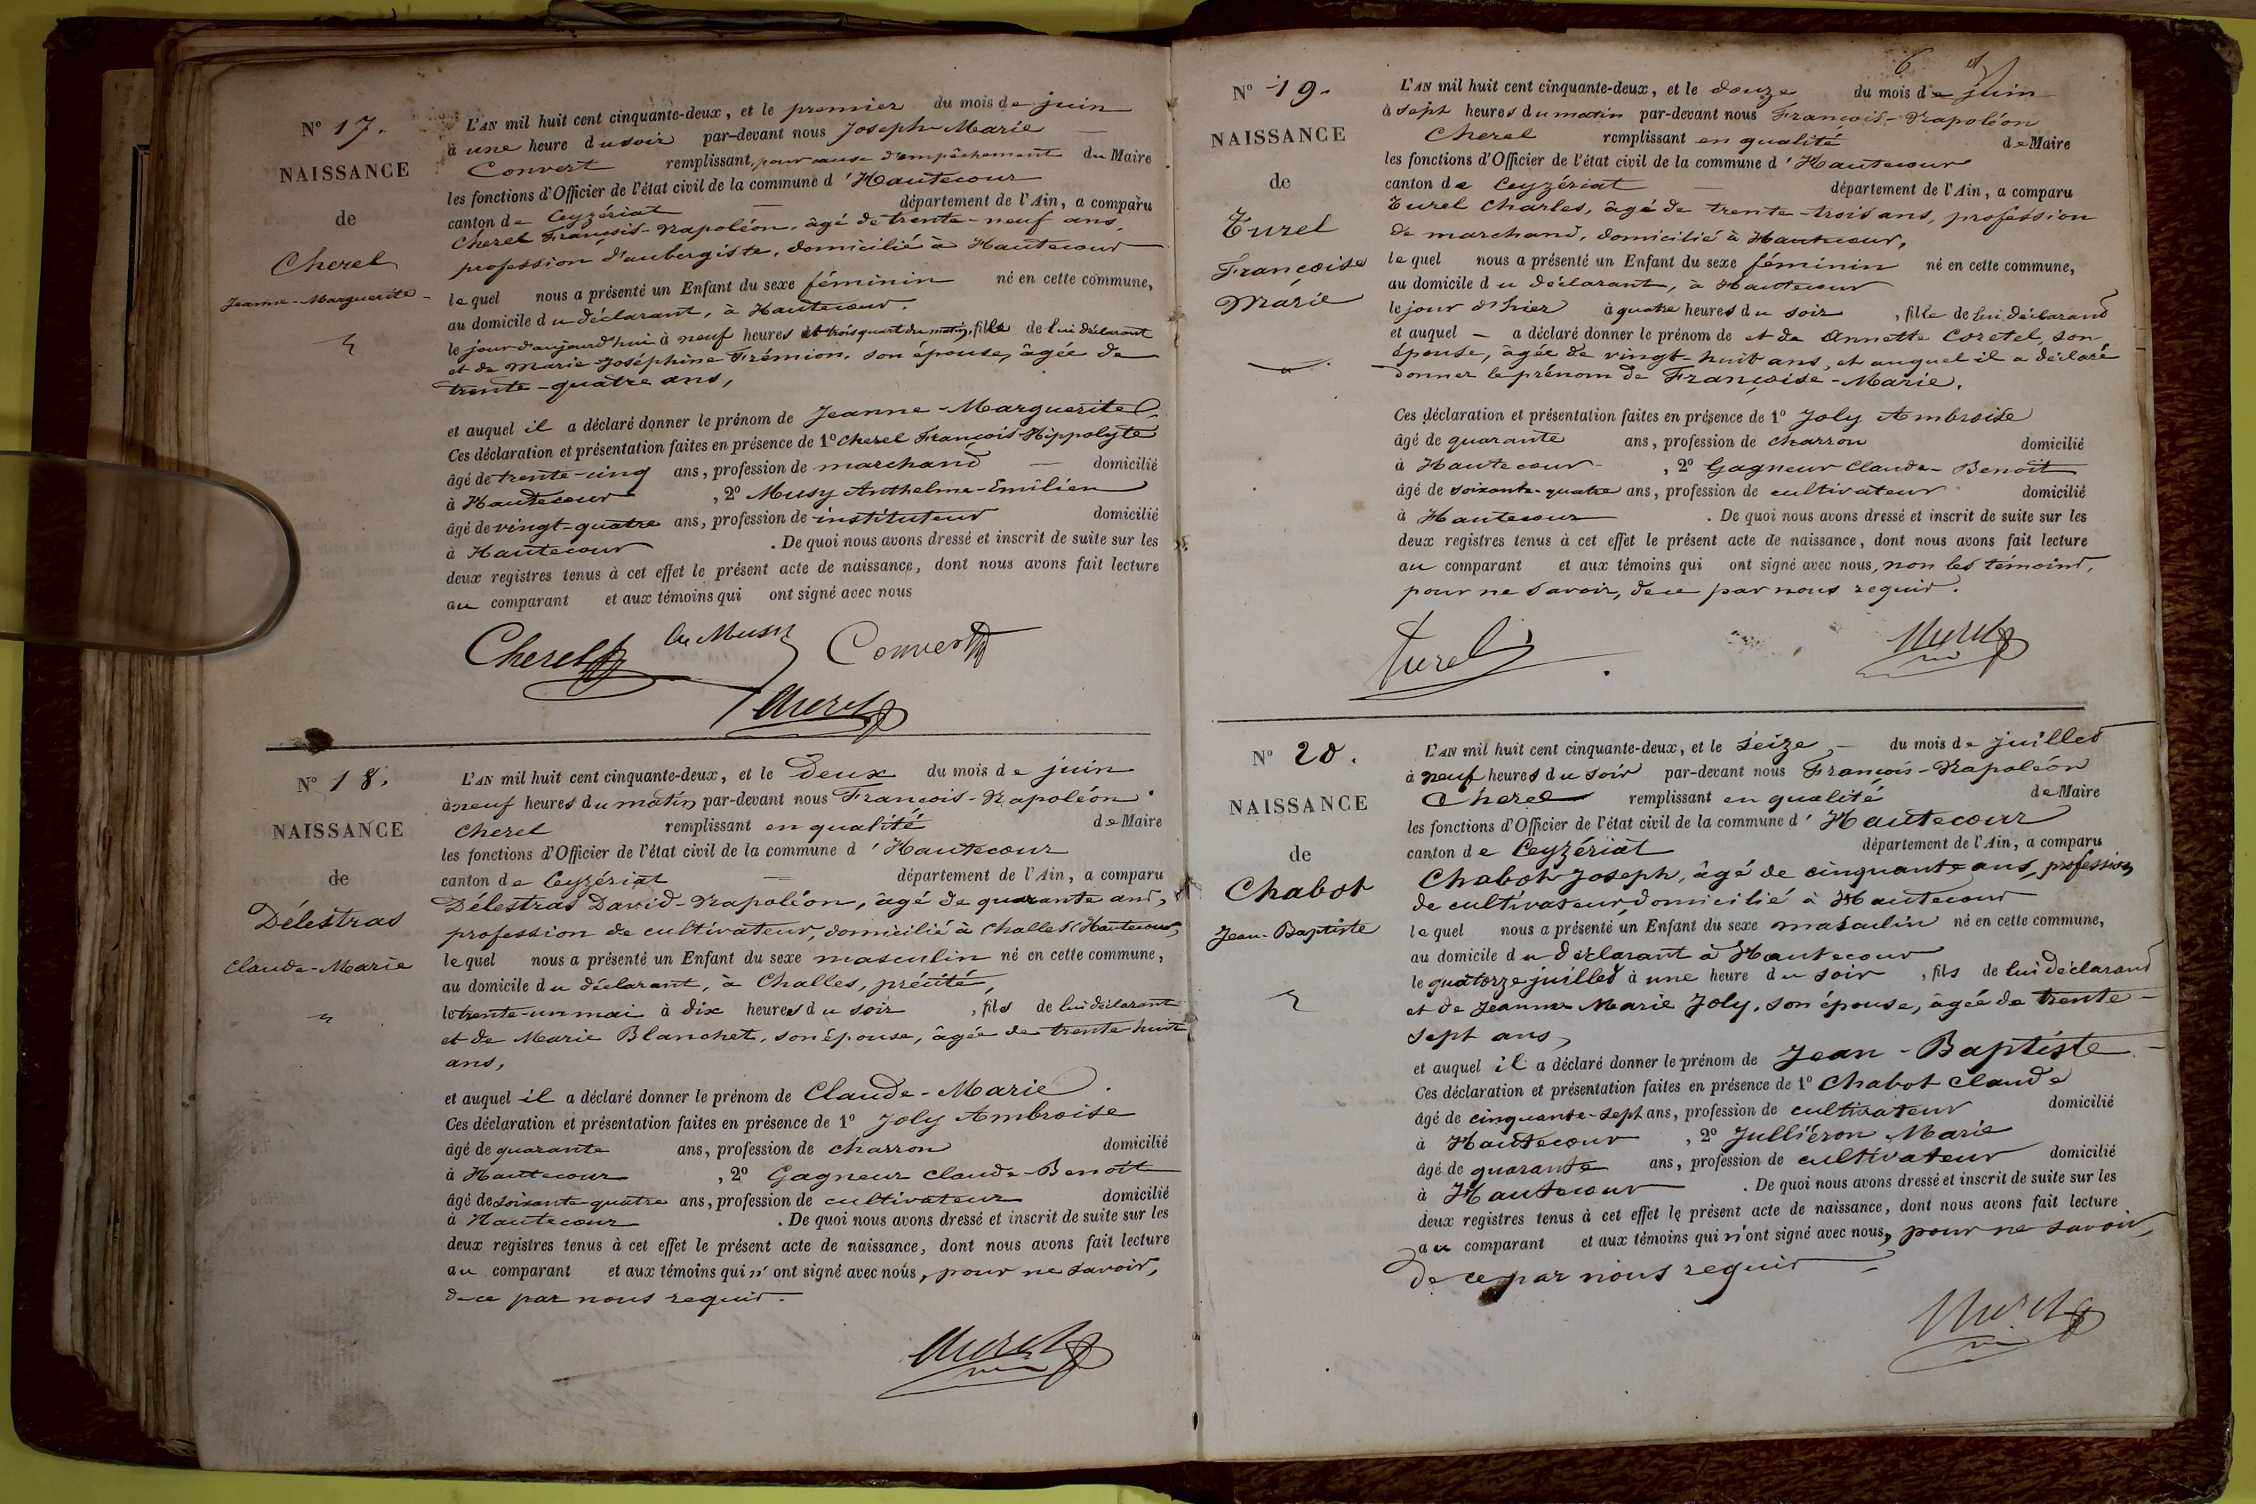 N° 17.
NAISSANCE
de
Cherel
Jeanne-Marguerite
L'AN mil huit cent cinquante-deux, et le premier du mois de juin
à une heure du soir par-devant nous Joseph-Marie
Convert remplissant, pour cause d'empêchement du Maire
les fonctions d'Officier de l'état civil de la commune d'Hautecour
canton de Ceyzériat département de l'Ain, a comparu
Cherel François-Napoléon, âgé de trente-neuf ans,
profession d'aubergiste, domicilié à Hautecour
lequel nous a présenté un Enfant du sexe féminin né en cette commune,
au domicile du déclarant, à Hautecour.
le jour d'aujourd'hui à neuf heures et trois quart du matin, fille de lui déclarant
et de Marie Joséphine Frémion, son épouse, âgée de
trente-quatre ans,
et auquel il a déclaré donner le prénom de Jeanne-Marguerite.
Ces déclaration et présentation faites en présence de 1° Cherel François Hippolyte
âgé de trente-cinq ans, profession de marchand domicilié
à Hautecour, 2° Musy Anthelme-Emilien
âgé de vingt-quatre ans, profession de instituteur domicilié
à Hautecour. De quoi nous avons dressé et inscrit de suite sur les
deux registres tenus à cet effet le présent acte de naissance, dont nous avons fait lecture
au comparant et aux témoins qui ont signé avec nous
Cherel Musy Convert
Cherel
N° 18.
NAISSANCE
de
Délestras
Claude-Marie
L'AN mil huit cent cinquante-deux, et le deux du mois de juin
à neuf heures du matin par-devant nous François-Napoléon
Cherel remplissant en qualité de Maire
les fonctions d'Officier de l'état civil de la commune d'Hautecour
canton de Ceyzériat département de l'Ain, a comparu
Délestras David-Napoléon, âgé de quarante ans,
profession de cultivateur, domicilié à Challes (Hautecour)
lequel nous a présenté un Enfant du sexe masculin né en cette commune,
au domicile du déclarant, à Challes, précité,
le trente-un mai à dix heures du soir, fils de lui déclarant
et de Marie Blanchet, son épouse, âgée de trente huit
ans,
et auquel il a déclaré donner le prénom de Claude-Marie.
Ces déclaration et présentation faites en présence de 1° Joly Ambroise
âgé de quarante ans, profession de charron domicilié
à Hautecour, 2° Gagneur Claude-Benoît
âgé de soixante-quatre ans, profession de cultivateur domicilié
à Hautecour. De quoi nous avons dressé et inscrit de suite sur les
deux registres tenus à cet effet le présent acte de naissance, dont nous avons fait lecture
au comparant et aux témoins qui n'ont signé avec nous, pour ne savoir,
de ce par nous requis.
Cherel
6
N° 19.
NAISSANCE
de
Turel
Françoise
Marie
L'AN mil huit cent cinquante-deux, et le douze du mois de juin
à sept heures du matin par-devant nous François-Napoléon
Cherel remplissant en qualité de Maire
les fonctions d'Officier de l'état civil de la commune d'Hautecour
canton de Ceyzériat département de l'Ain, a comparu
Turel Charles, âgé de trente-trois ans, profession
de marchand, domicilié à Hautecour,
lequel nous a présenté un Enfant du sexe féminin né en cette commune,
au domicile du déclarant, à Hautecour
le jour d'hier à quatre heures du soir, fille de lui déclarant
et auquel a déclaré donner le prénom de et de Annette Coretel, son
épouse, âgée de vingt-huit ans, et auquel il a déclaré
donner le prénom de Françoise-Marie.
Ces déclaration et présentation faites en présence de 1° Joly Ambroise
âgé de quarante ans, profession de charron domicilié
à Hautecour, 2° Gagneur Claude-Benoît
âgé de soixante-quatre ans, profession de cultivateur domicilié
à Hautecour. De quoi nous avons dressé et inscrit de suite sur les
deux registres tenus à cet effet le présent acte de naissance, dont nous avons fait lecture
au comparant et aux témoins qui ont signé avec nous, non les témoins,
pour ne savoir, de ce par nous requis.
Turel Cherel
N° 20.
NAISSANCE
de
Chabot
Jean-Baptiste
L'AN mil huit cent cinquante-deux, et le seize du mois de juillet
à neuf heures du soir par-devant nous François-Napoléon
Cherel remplissant en qualité de Maire
les fonctions d'Officier de l'état civil de la commune d'Hautecour
canton de Ceyzériat département de l'Ain, a comparu
Chabot Joseph, âgé de cinquante ans, profession
de cultivateur, domicilié à Hautecour
lequel nous a présenté un Enfant du sexe masculin né en cette commune,
au domicile du déclarant à Hautecour
le quatorze juillet à une heure du soir, fils de lui déclarant
et de Jeanne Marie Joly, son épouse, âgée de trente-
sept ans,
et auquel il a déclaré donner le prénom de Jean-Baptiste
Ces déclaration et présentation faites en présence de 1° Chabot Claude
âgé de cinquante-sept ans, profession de cultivateur domicilié
à Hautecour, 2° Julliéron Marie
âgé de quarante ans, profession de cultivateur domicilié
à Hautecour. De quoi nous avons dressé et inscrit de suite sur les
deux registres tenus à cet effet le présent acte de naissance, dont nous avons fait lecture
au comparant et aux témoins qui n'ont signé avec nous, pour ne savoir,
de ce par nous requis
Cherel